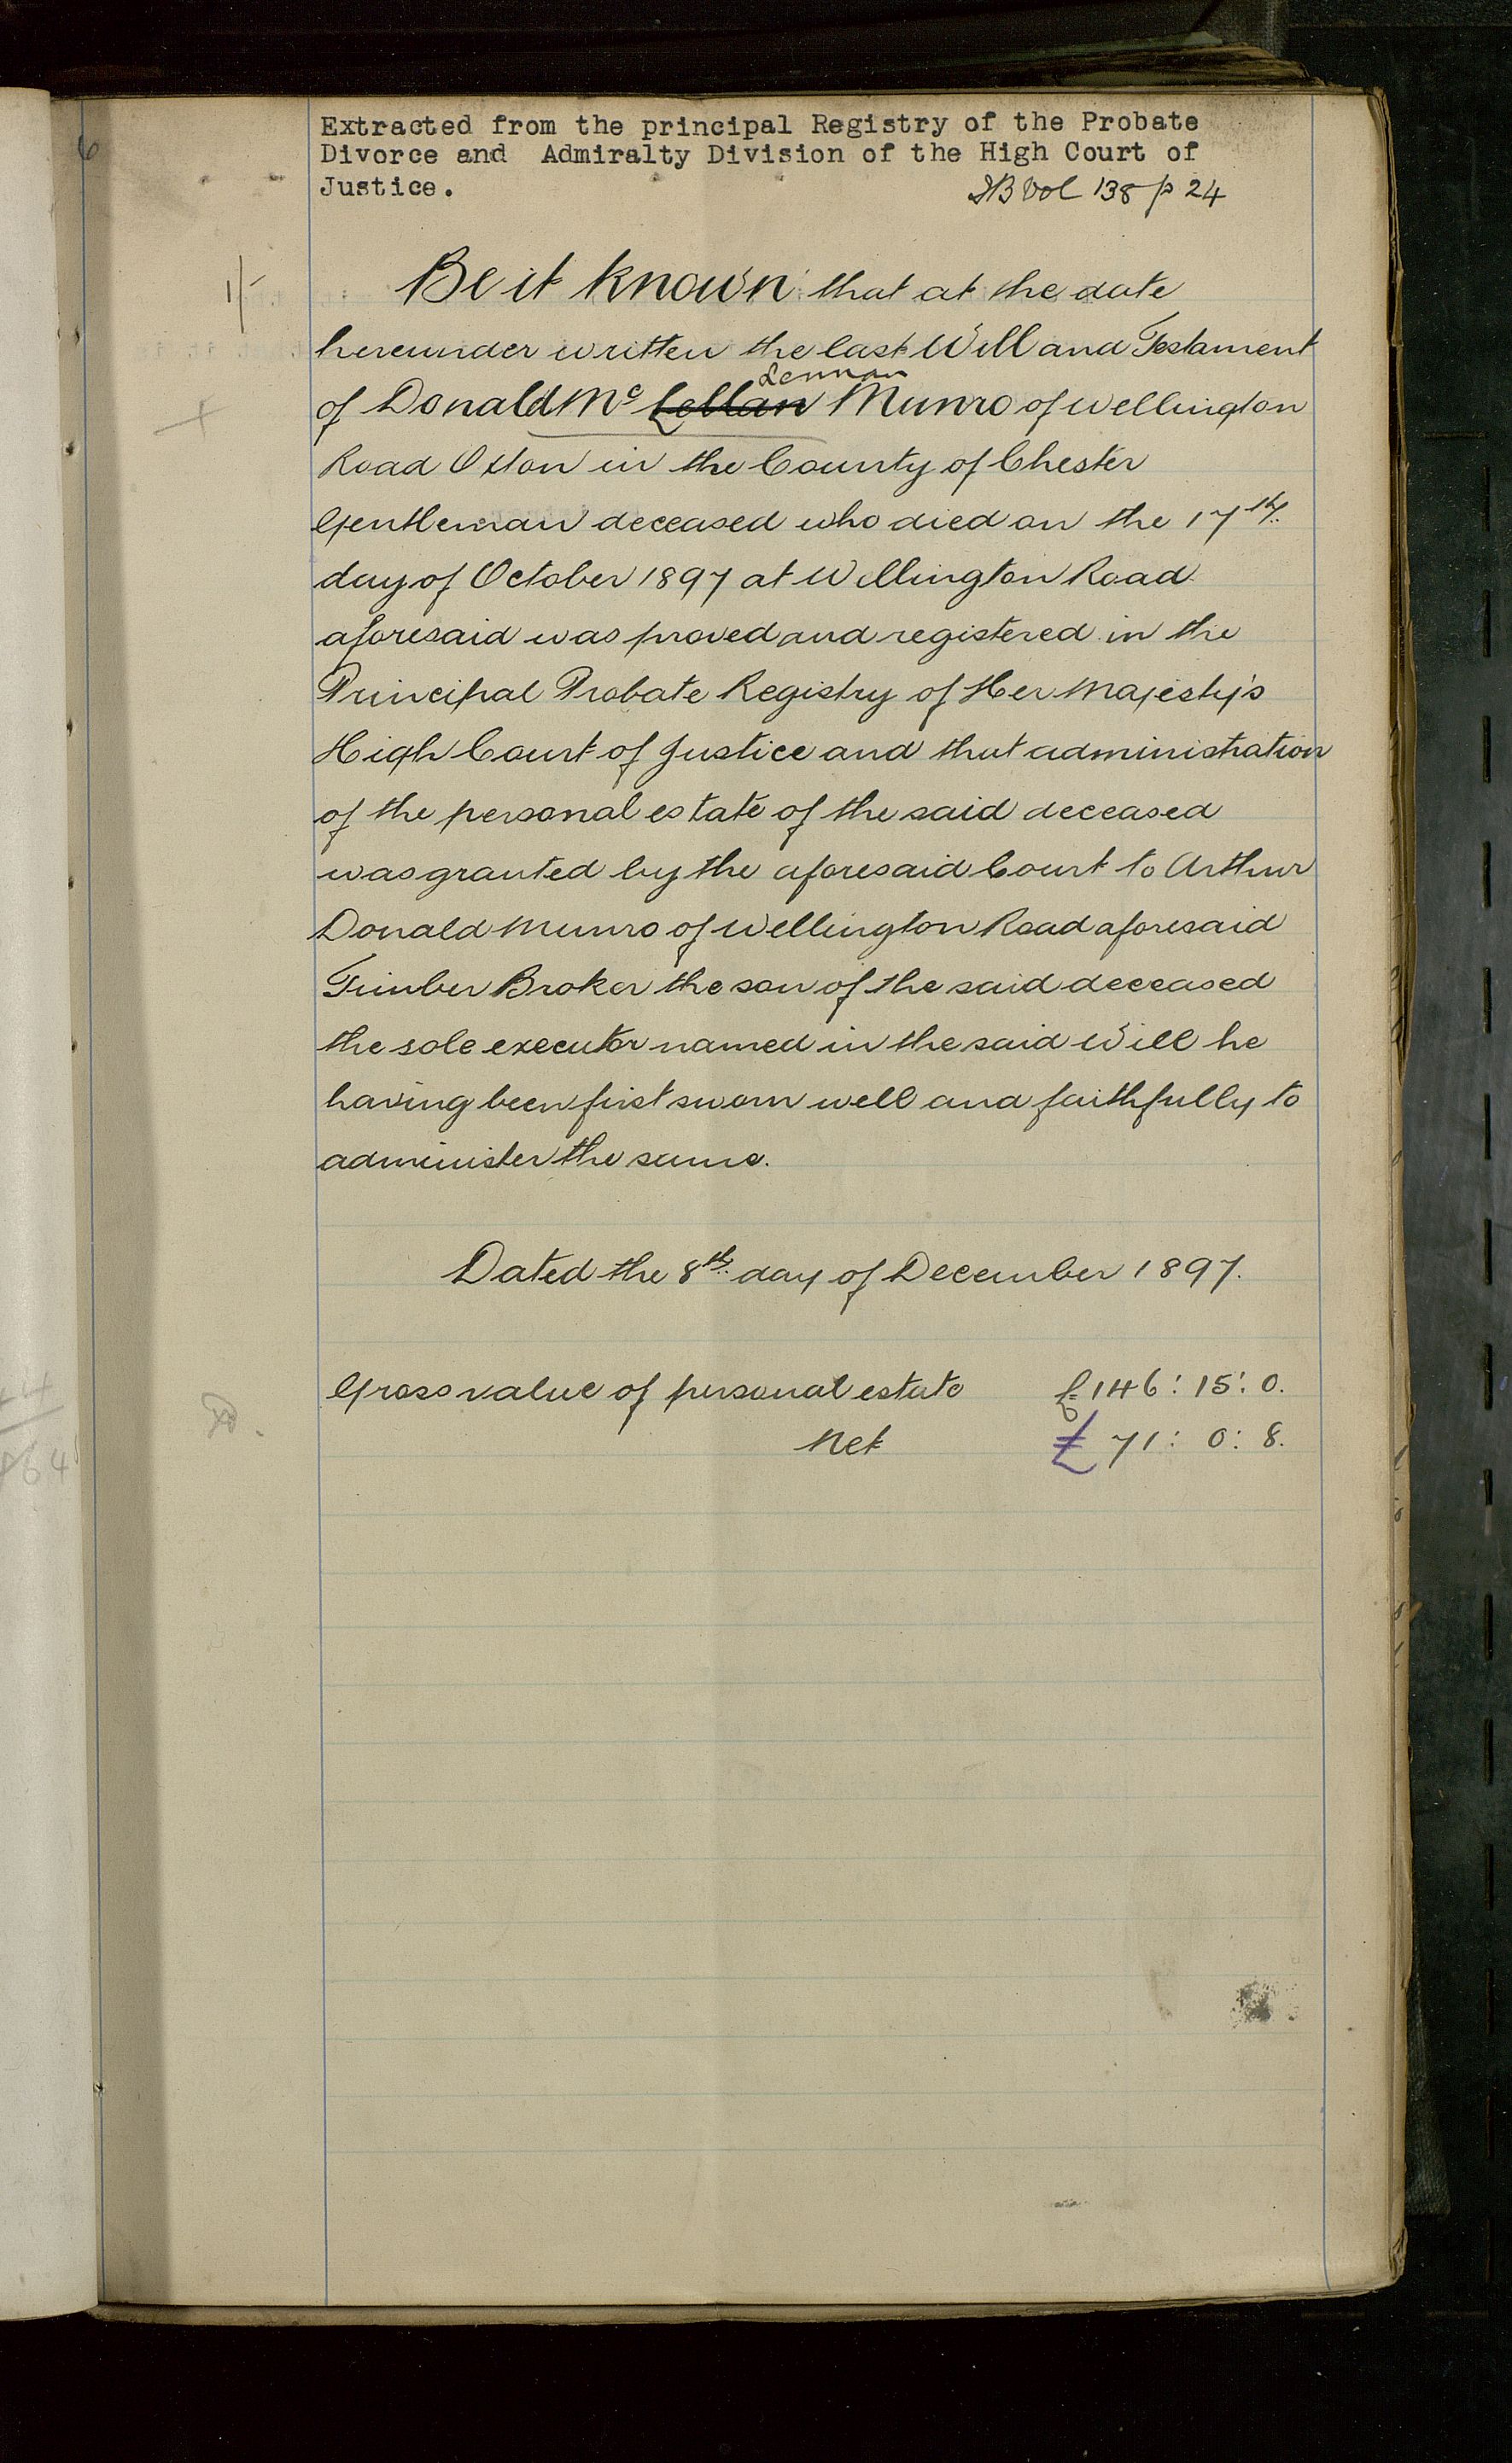 Extracted from the principal Registry of the Probate
Divorce and Admiralty Division of the High Court of
Justice.
Vol 138 p 24
1/-
Be it known that at the date
hereunder written the last Will and Testament
Lennan
of Donald Mc Lellan Munro of Wellington
Road Oxton in the County of Chester
Gentleman deceased who died on the 17th
day of October 1897 at Wellington Road
aforesaid was proved and registered in the
Principal Probate Registry of Her Majesty's
High Court of Justice and that administration
of the personal estate of the said deceased
was granted by the aforesaid Court to Arthur
Donald Munro of Wellington Road aforesaid
Timber Broker the son of the said deceased
the sole executor named in the said Will he
having been first sworn well and faithfully to
administer the same.
Dated the 8th day of December 1897.
Gross value of personal estate £146:15:0.
Net £71:0:8.